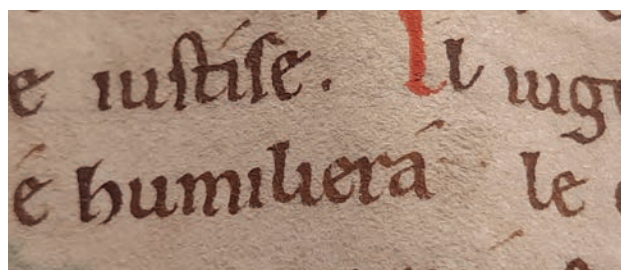 e iustíse. Il iug
é humilierá le